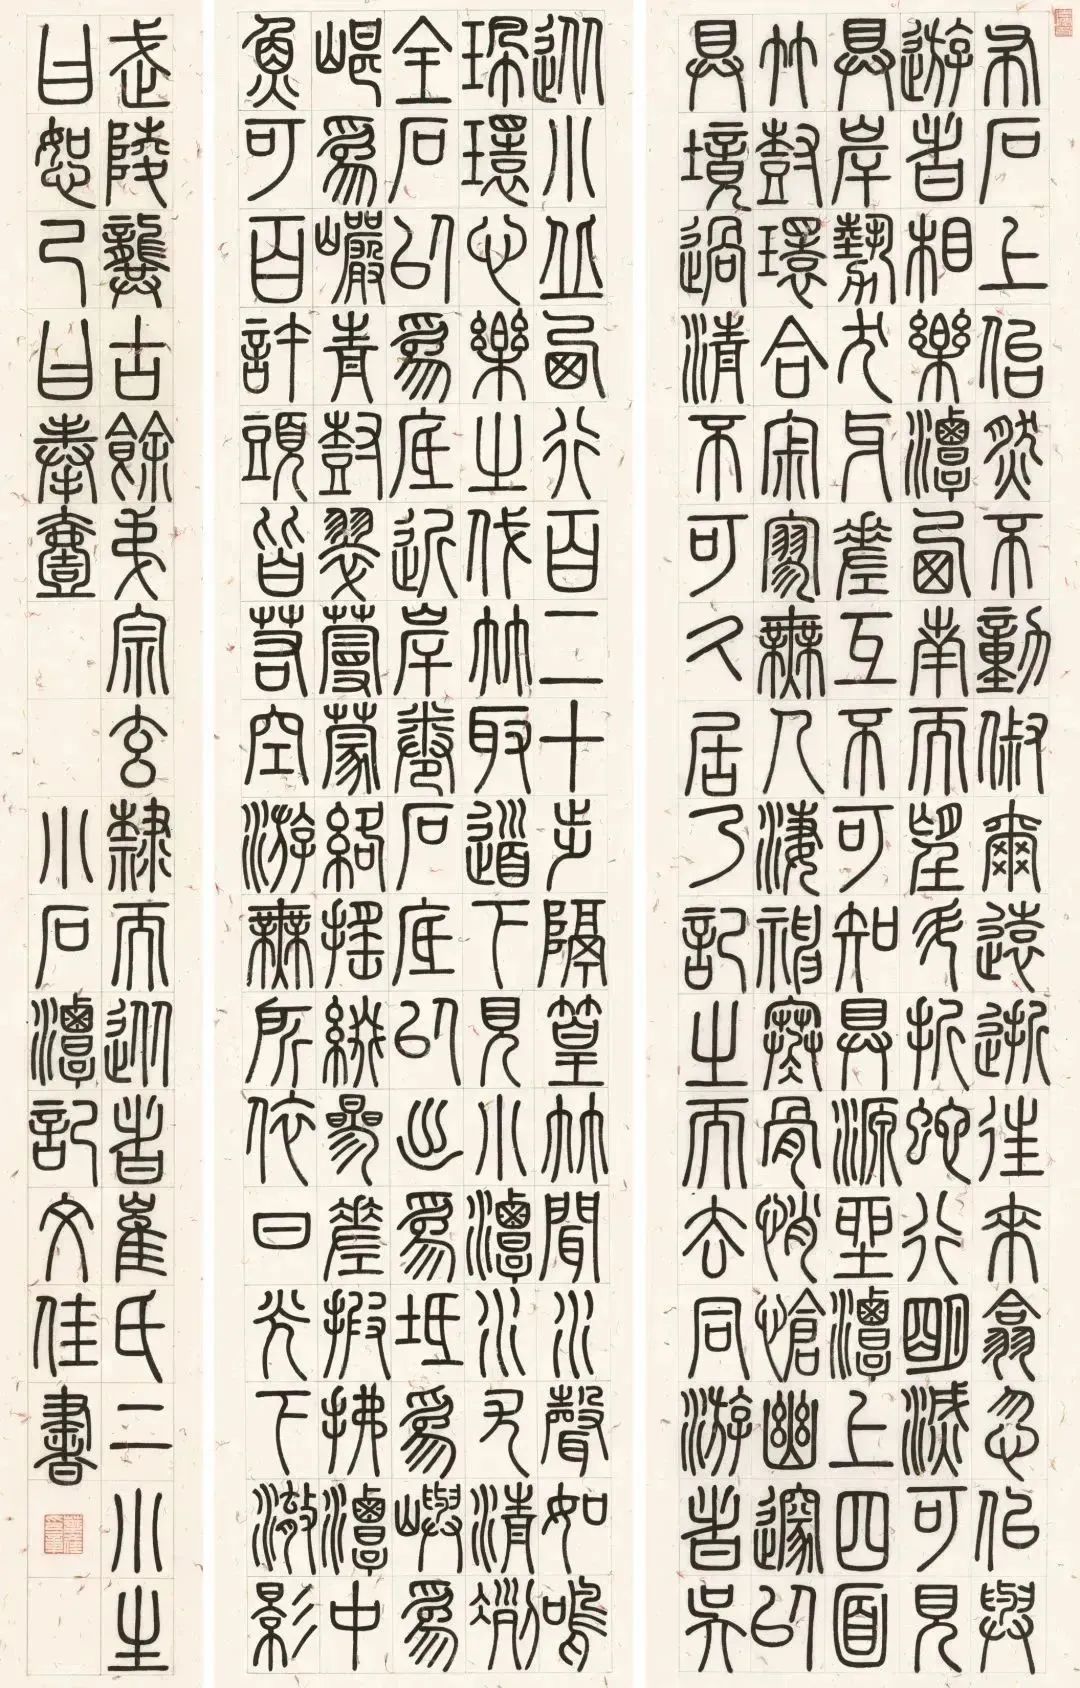 從小丘西行百二十步隔篁竹聞水聲如鳴
珮環心樂之伐竹取道下見小潭水尤清冽
全石以爲底近岸卷石底以出爲坻爲嶼爲
嵁爲巖青樹翠蔓蒙絡搖綴參差披拂潭中
魚可百許頭皆若空游無所依日光下澈影
布石上佁然不動俶爾遠逝往來翕忽似與
遊者相樂潭西南而望斗折蛇行明滅可見
其岸勢犬牙差互不可知其源坐潭上四面
竹樹環合寂寥無人淒神寒骨悄愴幽邃以
其境過清不可久居乃記之而去同游者吳
武陵龔古餘弟宗玄隸而從者崔氏二小生
曰恕己曰奉壹 小石潭記文佳書